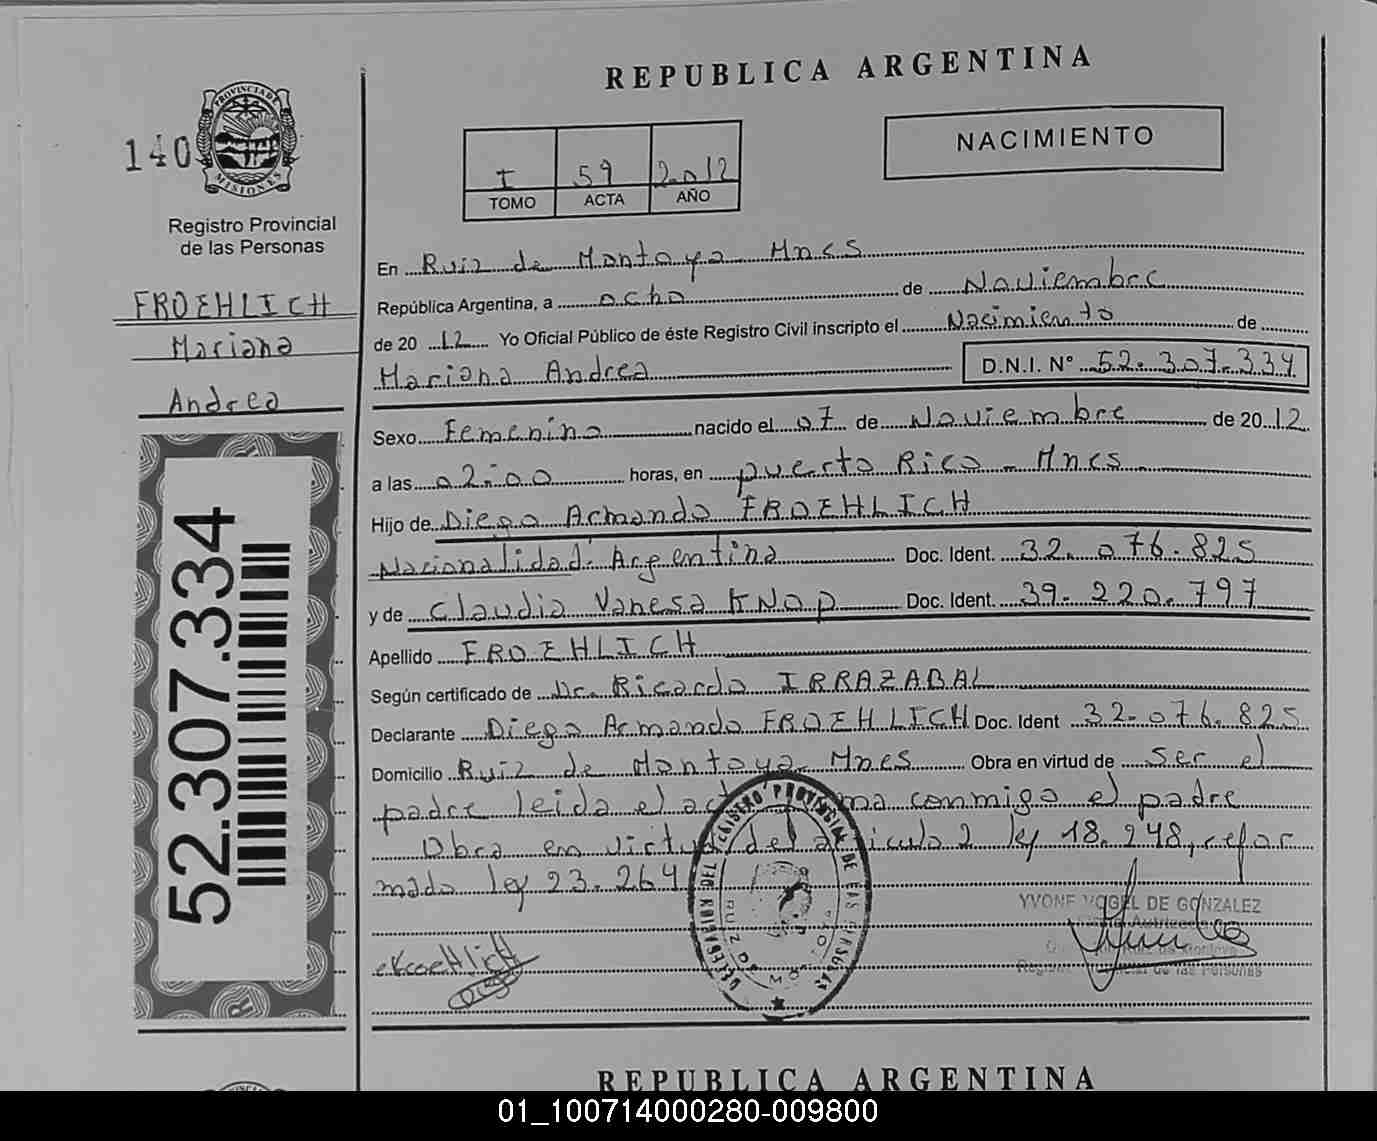 REPUBLICA ARGENTINA
140
PROVINCIA DE
MISIONES
Registro Provincial
de las Personas
FROEHLICH
Mariana
Andrea
52.307.334
I 59 2.012
TOMO ACTA AÑO
NACIMIENTO
En Ruiz de Montoya Mnes
República Argentina, a ocho de Noviembre
de 20 12 Yo Oficial Público de éste Registro Civil inscripto el Nacimiento de
Mariana Andrea D.N.I. Nº 52.307.334
Sexo Femenino nacido el 07 de Noviembre de 20 12
a las 02:00 horas, en puerto Rico - Mnes -
Hijo de Diego Armando FROEHLICH
Nacionalidad: Argentina Doc. Ident. 32.076.825
y de Claudia Vanesa KNOP Doc. Ident. 39.220.797
Apellido FROEHLICH
Según certificado de Dr. Ricardo IRRAZABAL
Declarante Diego Armando FROEHLICH Doc. Ident 32.076.825
Domicilio Ruiz de Montoya Mnes Obra en virtud de ser el
padre leida el conmigo el padre
Obra en del 2 ley 18.248, refor
mado ley 23.264
DELEGACION DEL REGISTRO PROVINCIAL DE LAS PERSONAS
RUIZ DE MONTOYA
YVONE VOGEL DE GONZALEZ
de las Personas
Diego
REPUBLICA ARGENTINA
01_100714000280-009800